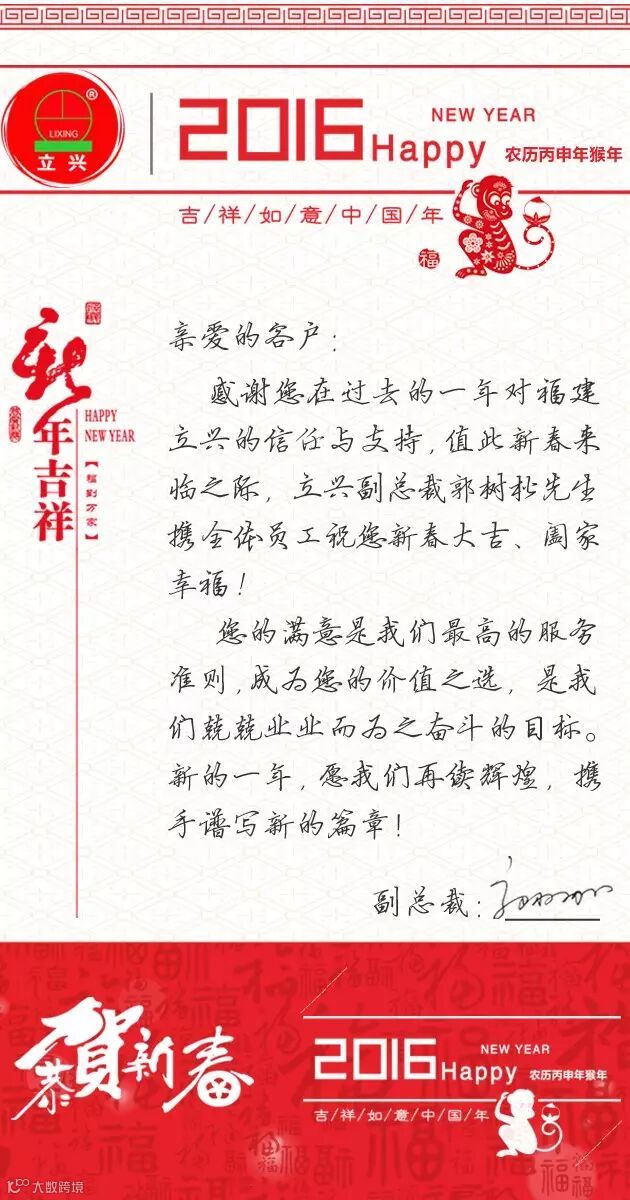 LIXING
®
立兴
2016
NEW YEAR
Happy 农历丙申年猴年
吉/祥/如/意/中/国/年
福
新
年吉祥
HAPPY
NEW YEAR
【福到万家】
亲爱的客户：
感谢您在过去的一年对福建
立兴的信任与支持，值此新春来
临之际，立兴副总裁郭树松先生
携全体员工祝您新春大吉、阖家
幸福！
您的满意是我们最高的服务
准则，成为您的价值之选，是我
们兢兢业业而为之奋斗的目标。
新的一年，愿我们再续辉煌，携
手谱写新的篇章！
副总裁：
恭贺新春
2016
NEW YEAR
Happy 农历丙申年猴年
吉/祥/如/意/中/国/年
大数跨境